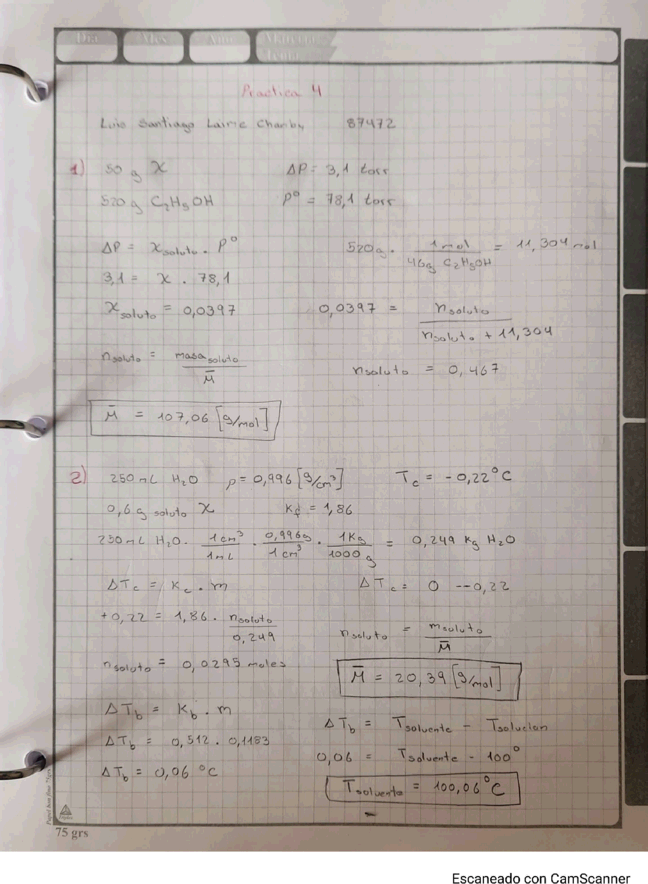 Dia Mes Año
Practica 4
Luis Santiago Laime 87472
1) 50 g X ΔP = 3,1 torr
520 g C₂H₅OH P° = 78,1 torr
ΔP = X soluto . P° 520g . 1mol / 46g C₂H₅OH = 11,304 mol
3,1 = X . 78,1
X soluto = 0,0397 0,0397 = n soluto / n soluto + 11,304
n soluto = masa soluto / M̄ n soluto = 0,467
M̄ = 107,06 [g/mol]
2) 250 mL H₂O ρ = 0,996 [g/cm³] Tc = -0,22°C
0,6 g soluto X Kf = 1,86
250 mL H₂O . 1cm³ / 1mL . 0,996g / 1cm³ . 1Kg / 1000g = 0,249 Kg H₂O
ΔTc = Kc . m ΔTc = 0 --0,22
+0,22 = 1,86 . n soluto / 0,249 n soluto = m soluto / M̄
n soluto = 0,0295 moles M̄ = 20,39 [g/mol]
ΔTb = Kb . m ΔTb = Tsolvente - Tsolucion
ΔTb = 0,512 . 0,1183 0,06 = Tsolvente - 100°
ΔTb = 0,06 °C Tsolvente = 100,06°C
75 grs
Escaneado con CamScanner